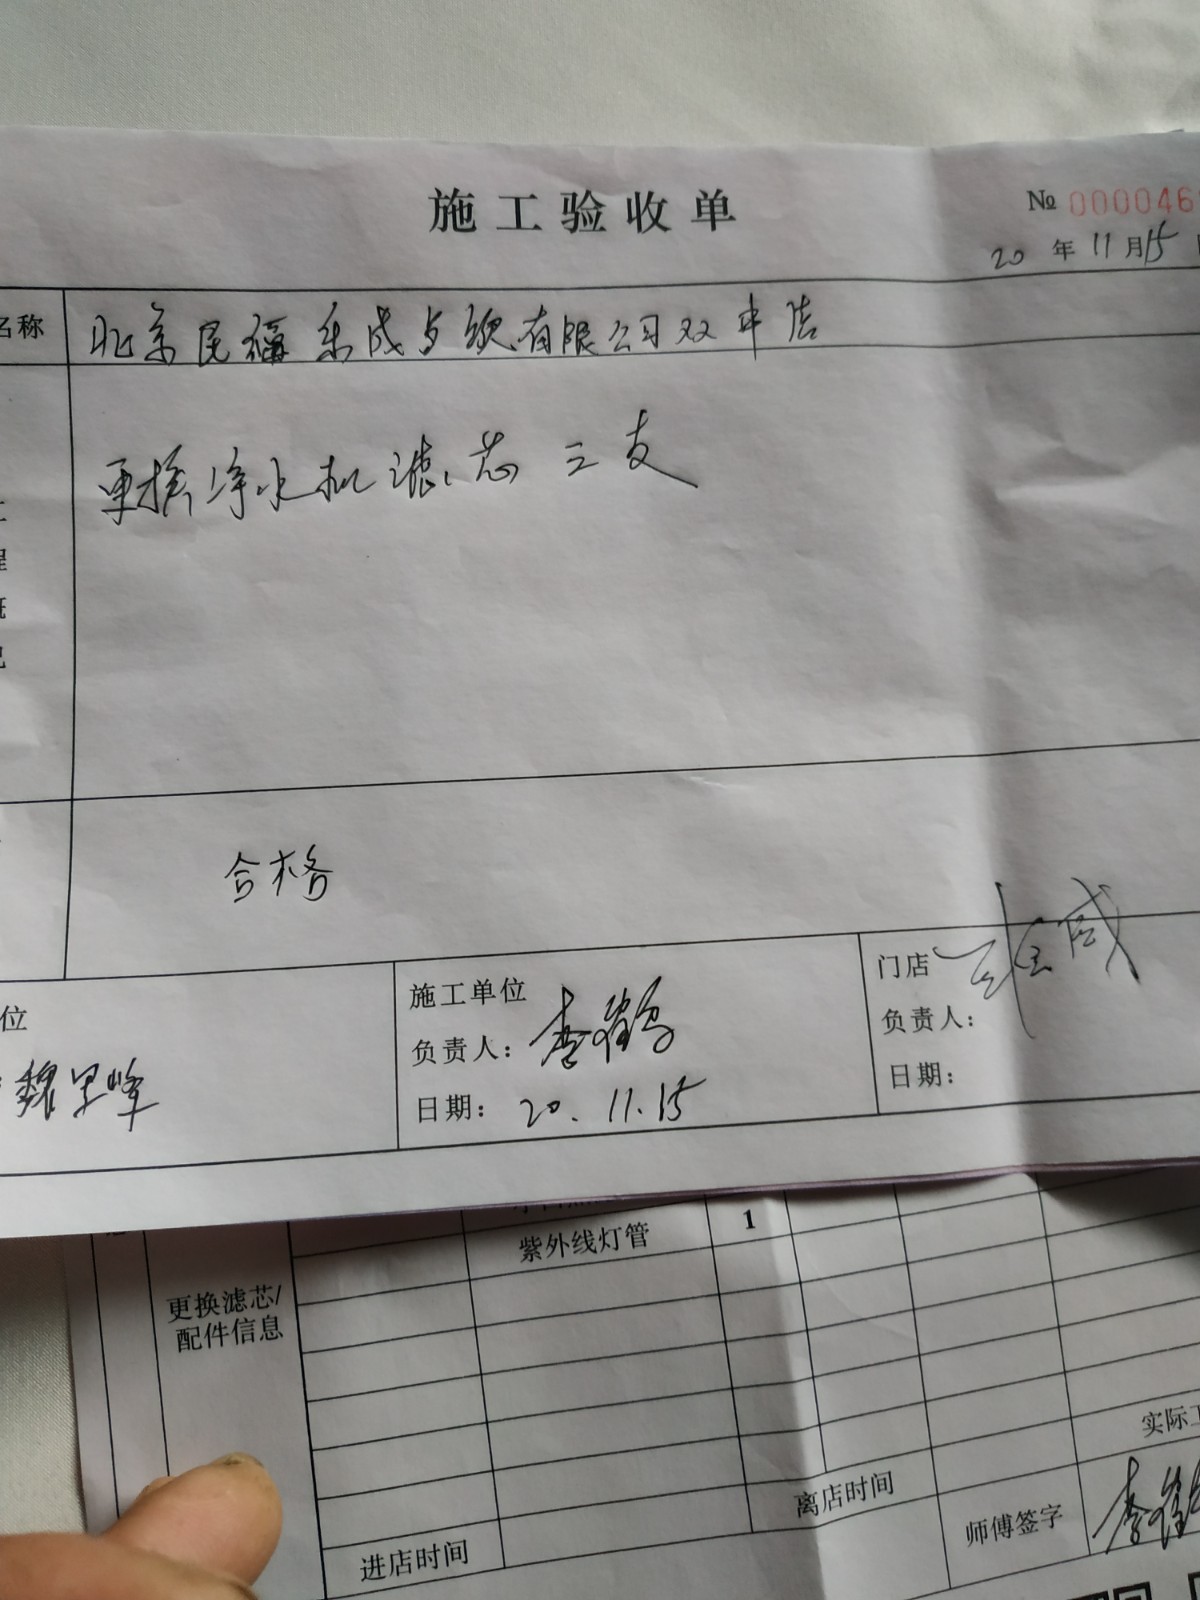 施工验收单
№ 000046
20 年 11 月 15
名称
北京民福乐成餐饮有限公司双井店
更换净水机滤芯三支
合格
位
施工单位
负责人：
日期：20.11.15
门店
负责人：
日期：
紫外线灯管 1
更换滤芯/
配件信息
实际工
离店时间
师傅签字
进店时间